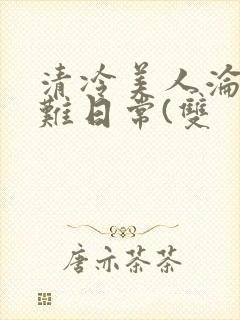 清冷美人淪
難日常(雙
唐亦茶茶